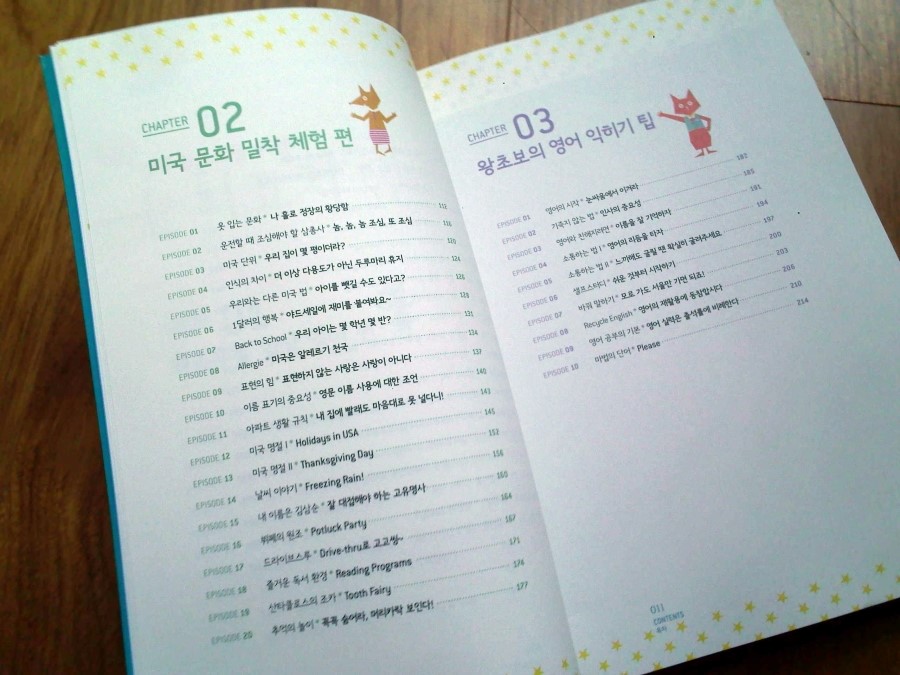 CHAPTER 02
미국 문화 밀착 체험 편
EPISODE 01 옷 입는 문화 * 나 홀로 정장의 황당함 112
EPISODE 02 운전할 때 조심해야 할 삼총사 * 놈, 놈, 놈 조심, 또 조심 116
EPISODE 03 미국 단위 * 우리 집이 몇 평이더라? 120
EPISODE 04 인식의 차이 * 더 이상 다용도가 아닌 두루마리 휴지 124
EPISODE 05 우리와는 다른 미국 법 * 아이를 뺏길 수도 있다고? 126
EPISODE 06 1달러의 행복 * 야드세일에 재미를 붙여봐요~ 128
EPISODE 07 Back to School * 우리 아이는 몇 학년 몇 반? 131
EPISODE 08 Allergie * 미국은 알레르기 천국 134
EPISODE 09 표현의 힘 * 표현하지 않는 사랑은 사랑이 아니다 137
EPISODE 10 이름 표기의 중요성 * 영문 이름 사용에 대한 조언 140
EPISODE 11 아파트 생활 규칙 * 내 집에 빨래도 마음대로 못 널다니! 143
EPISODE 12 미국 명절 I * Holidays in USA 145
EPISODE 13 미국 명절 II * Thanksgiving Day 152
EPISODE 14 날씨 이야기 * Freezing Rain! 156
EPISODE 15 내 이름은 김삼순 * 잘 대접해야 하는 고유명사 160
EPISODE 16 뷔페의 원조 * Potluck Party 164
EPISODE 17 드라이브스루 * Drive-thru로 고고씽~ 167
EPISODE 18 즐거운 독서 환경 * Reading Programs 171
EPISODE 19 산타클로스의 조카 * Tooth Fairy 174
EPISODE 20 추억의 놀이 * 꼭꼭 숨어라, 머리카락 보인다! 177
CHAPTER 03
왕초보의 영어 익히기 팁
EPISODE 01 영어의 시작 * 눈싸움에서 이겨라 182
EPISODE 02 기죽지 않는 법 * 인사의 중요성 185
EPISODE 03 영어와 친해지려면 * 이름을 잘 기억하자 191
EPISODE 04 소통하는 법 I * 영어의 리듬을 타자 194
EPISODE 05 소통하는 법 II * 느끼해도 굴릴 땐 확실히 굴려주세요 197
EPISODE 06 셀프스터디 * 쉬운 것부터 시작하기 200
EPISODE 07 바꿔 말하기 * 모로 가도 서울만 가면 되죠! 203
EPISODE 08 Recycle English * 영어의 재활용에 동참합시다 206
EPISODE 09 영어 공부의 기본 * 영어 실력은 출석률에 비례한다 210
EPISODE 10 마법의 단어 * Please 214
011
CONTENTS
목차